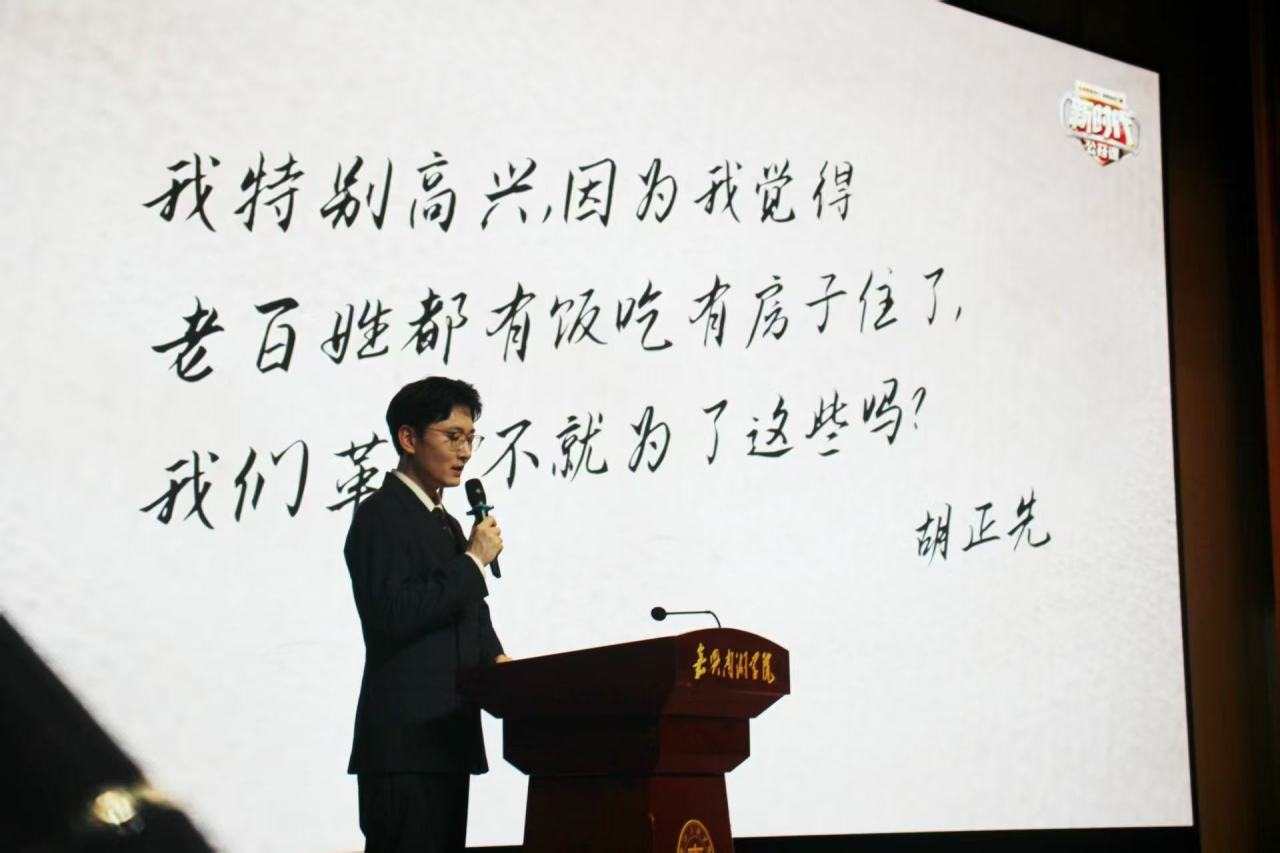 我特别高兴,因为我觉得
老百姓都有饭吃有房子住了,
我们革 不就为了这些吗?
胡正先
新时代
公开课
嘉兴南湖学院